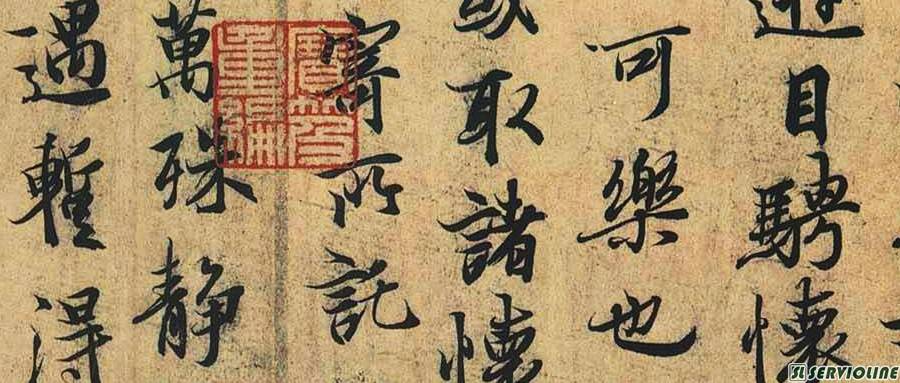 遊目騁懷
可樂也
或取諸懷
寄所託
萬殊靜
遇暫得
SL SERVIOLINE